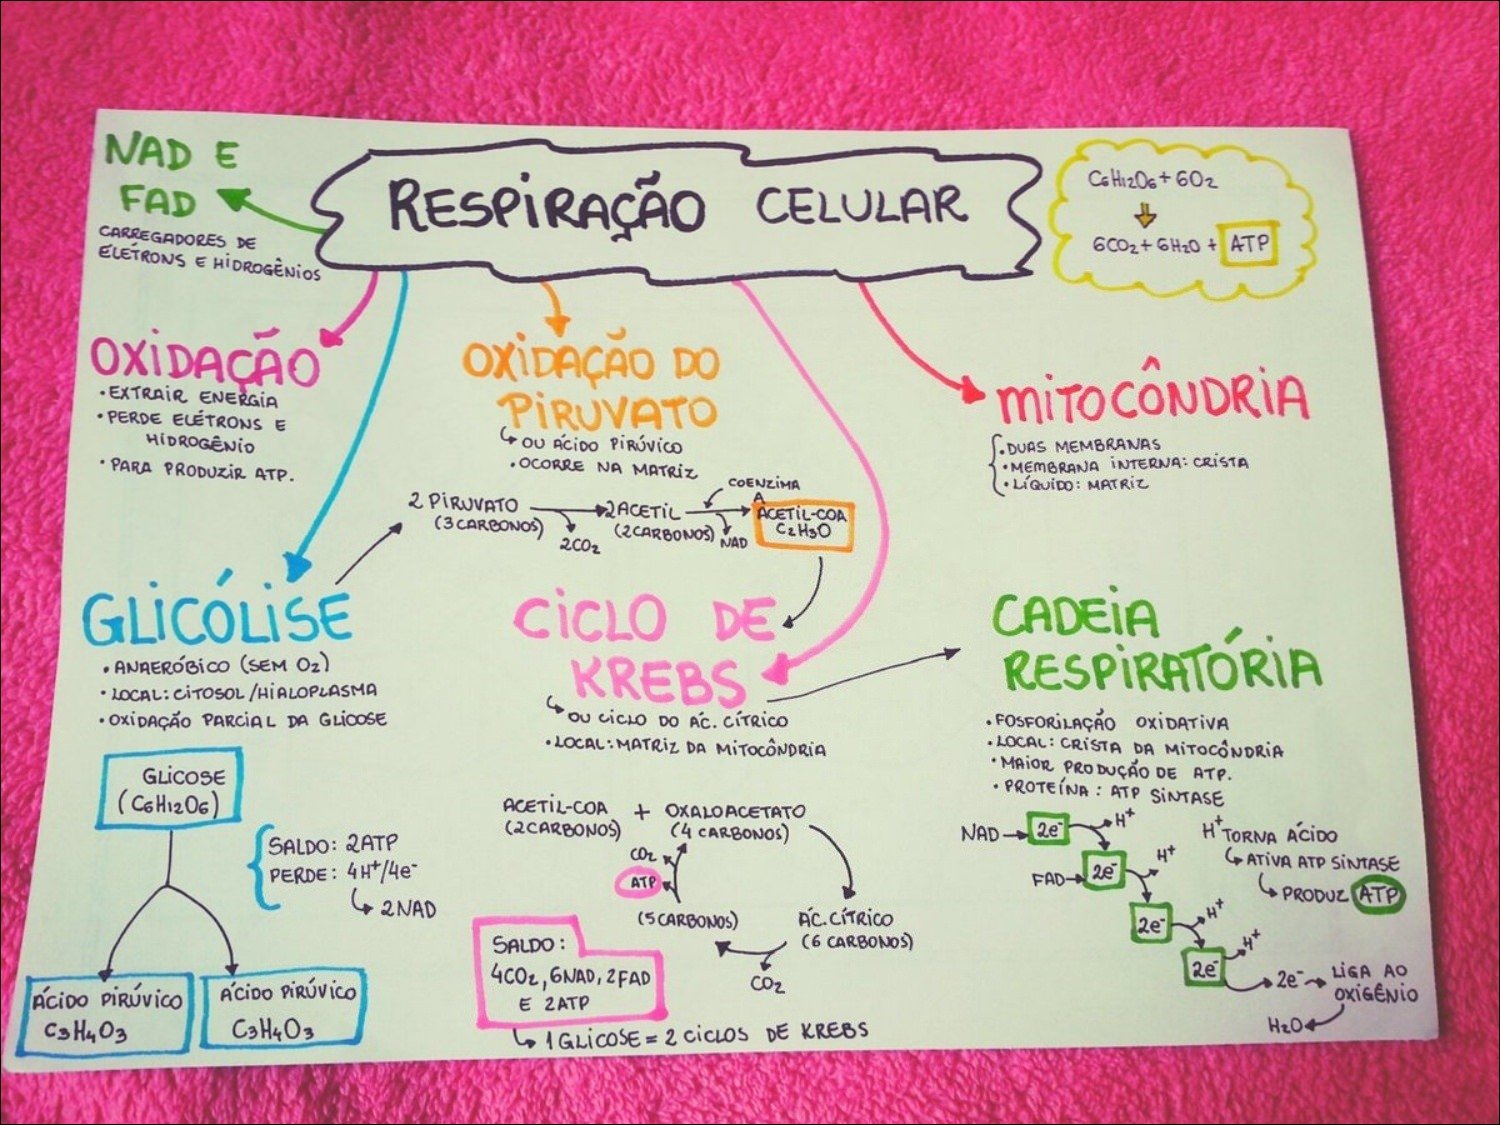 NAD E
FAD
CARREGADORES DE
ELÉTRONS E HIDROGÊNIOS
RESPIRAÇÃO CELULAR
C6H12O6 + 6O2
6CO2 + 6H2O + ATP
OXIDAÇÃO
• EXTRAIR ENERGIA
• PERDE ELÉTRONS E
HIDROGÊNIO
• PARA PRODUZIR ATP.
OXIDAÇÃO DO
PIRUVATO
OU ÁCIDO PIRÚVICO
• OCORRE NA MATRIZ
2 PIRUVATO
(3 CARBONOS)
2CO2
2 ACETIL
(2 CARBONOS)
COENZIMA
A
NAD
ACETIL-COA
C2H3O
MITOCÔNDRIA
• DUAS MEMBRANAS
• MEMBRANA INTERNA: CRISTA
• LÍQUIDO: MATRIZ
GLICÓLISE
• ANAERÓBICO (SEM O2)
• LOCAL: CITOSOL / HIALOPLASMA
• OXIDAÇÃO PARCIAL DA GLICOSE
GLICOSE
(C6H12O6)
SALDO: 2ATP
PERDE: 4H+/4e-
2NAD
ÁCIDO PIRÚVICO
C3H4O3
ÁCIDO PIRÚVICO
C3H4O3
CICLO DE
KREBS
OU CICLO DO ÁC. CÍTRICO
• LOCAL: MATRIZ DA MITOCÔNDRIA
ACETIL-COA + OXALOACETATO
(2 CARBONOS) (4 CARBONOS)
CO2
ATP
(5 CARBONOS)
ÁC. CÍTRICO
(6 CARBONOS)
CO2
SALDO:
4CO2, 6NAD, 2FAD
E 2ATP
1 GLICOSE = 2 CICLOS DE KREBS
CADEIA
RESPIRATÓRIA
• FOSFORILAÇÃO OXIDATIVA
• LOCAL: CRISTA DA MITOCÔNDRIA
• MAIOR PRODUÇÃO DE ATP.
• PROTEÍNA: ATP SINTASE
NAD 2e- H+
FAD 2e- H+
2e- H+
2e- H+
H+ TORNA ÁCIDO
ATIVA ATP SINTASE
PRODUZ ATP
2e- LIGA AO
OXIGÊNIO
H2O